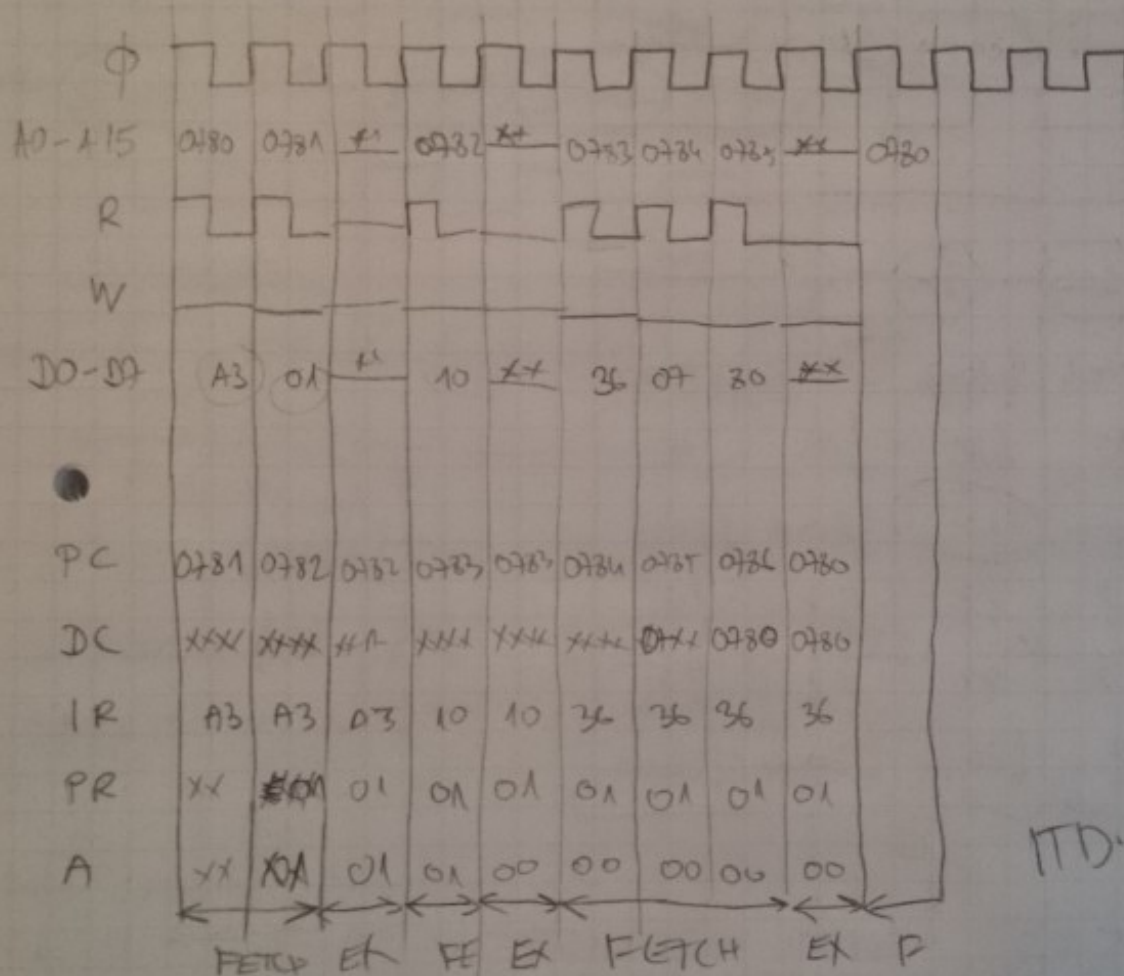 ϕ
A0-A15 0780 0781 xx 0782 xx 0783 0784 0785 xx 0780
R
W
D0-D7 A3 01 xx 10 xx 36 07 80 xx
PC 0781 0782 0782 0783 0783 0784 0785 0786 0780
DC xxxx xxxx xxxx xxxx xxxx 07xx 0780 0780
IR A3 A3 A3 10 10 36 36 36 36
PR xx 01 01 01 01 01 01 01 01
A xx 01 01 00 00 00 00 00
FETCH EX FE EX FETCH EX F
ITD.